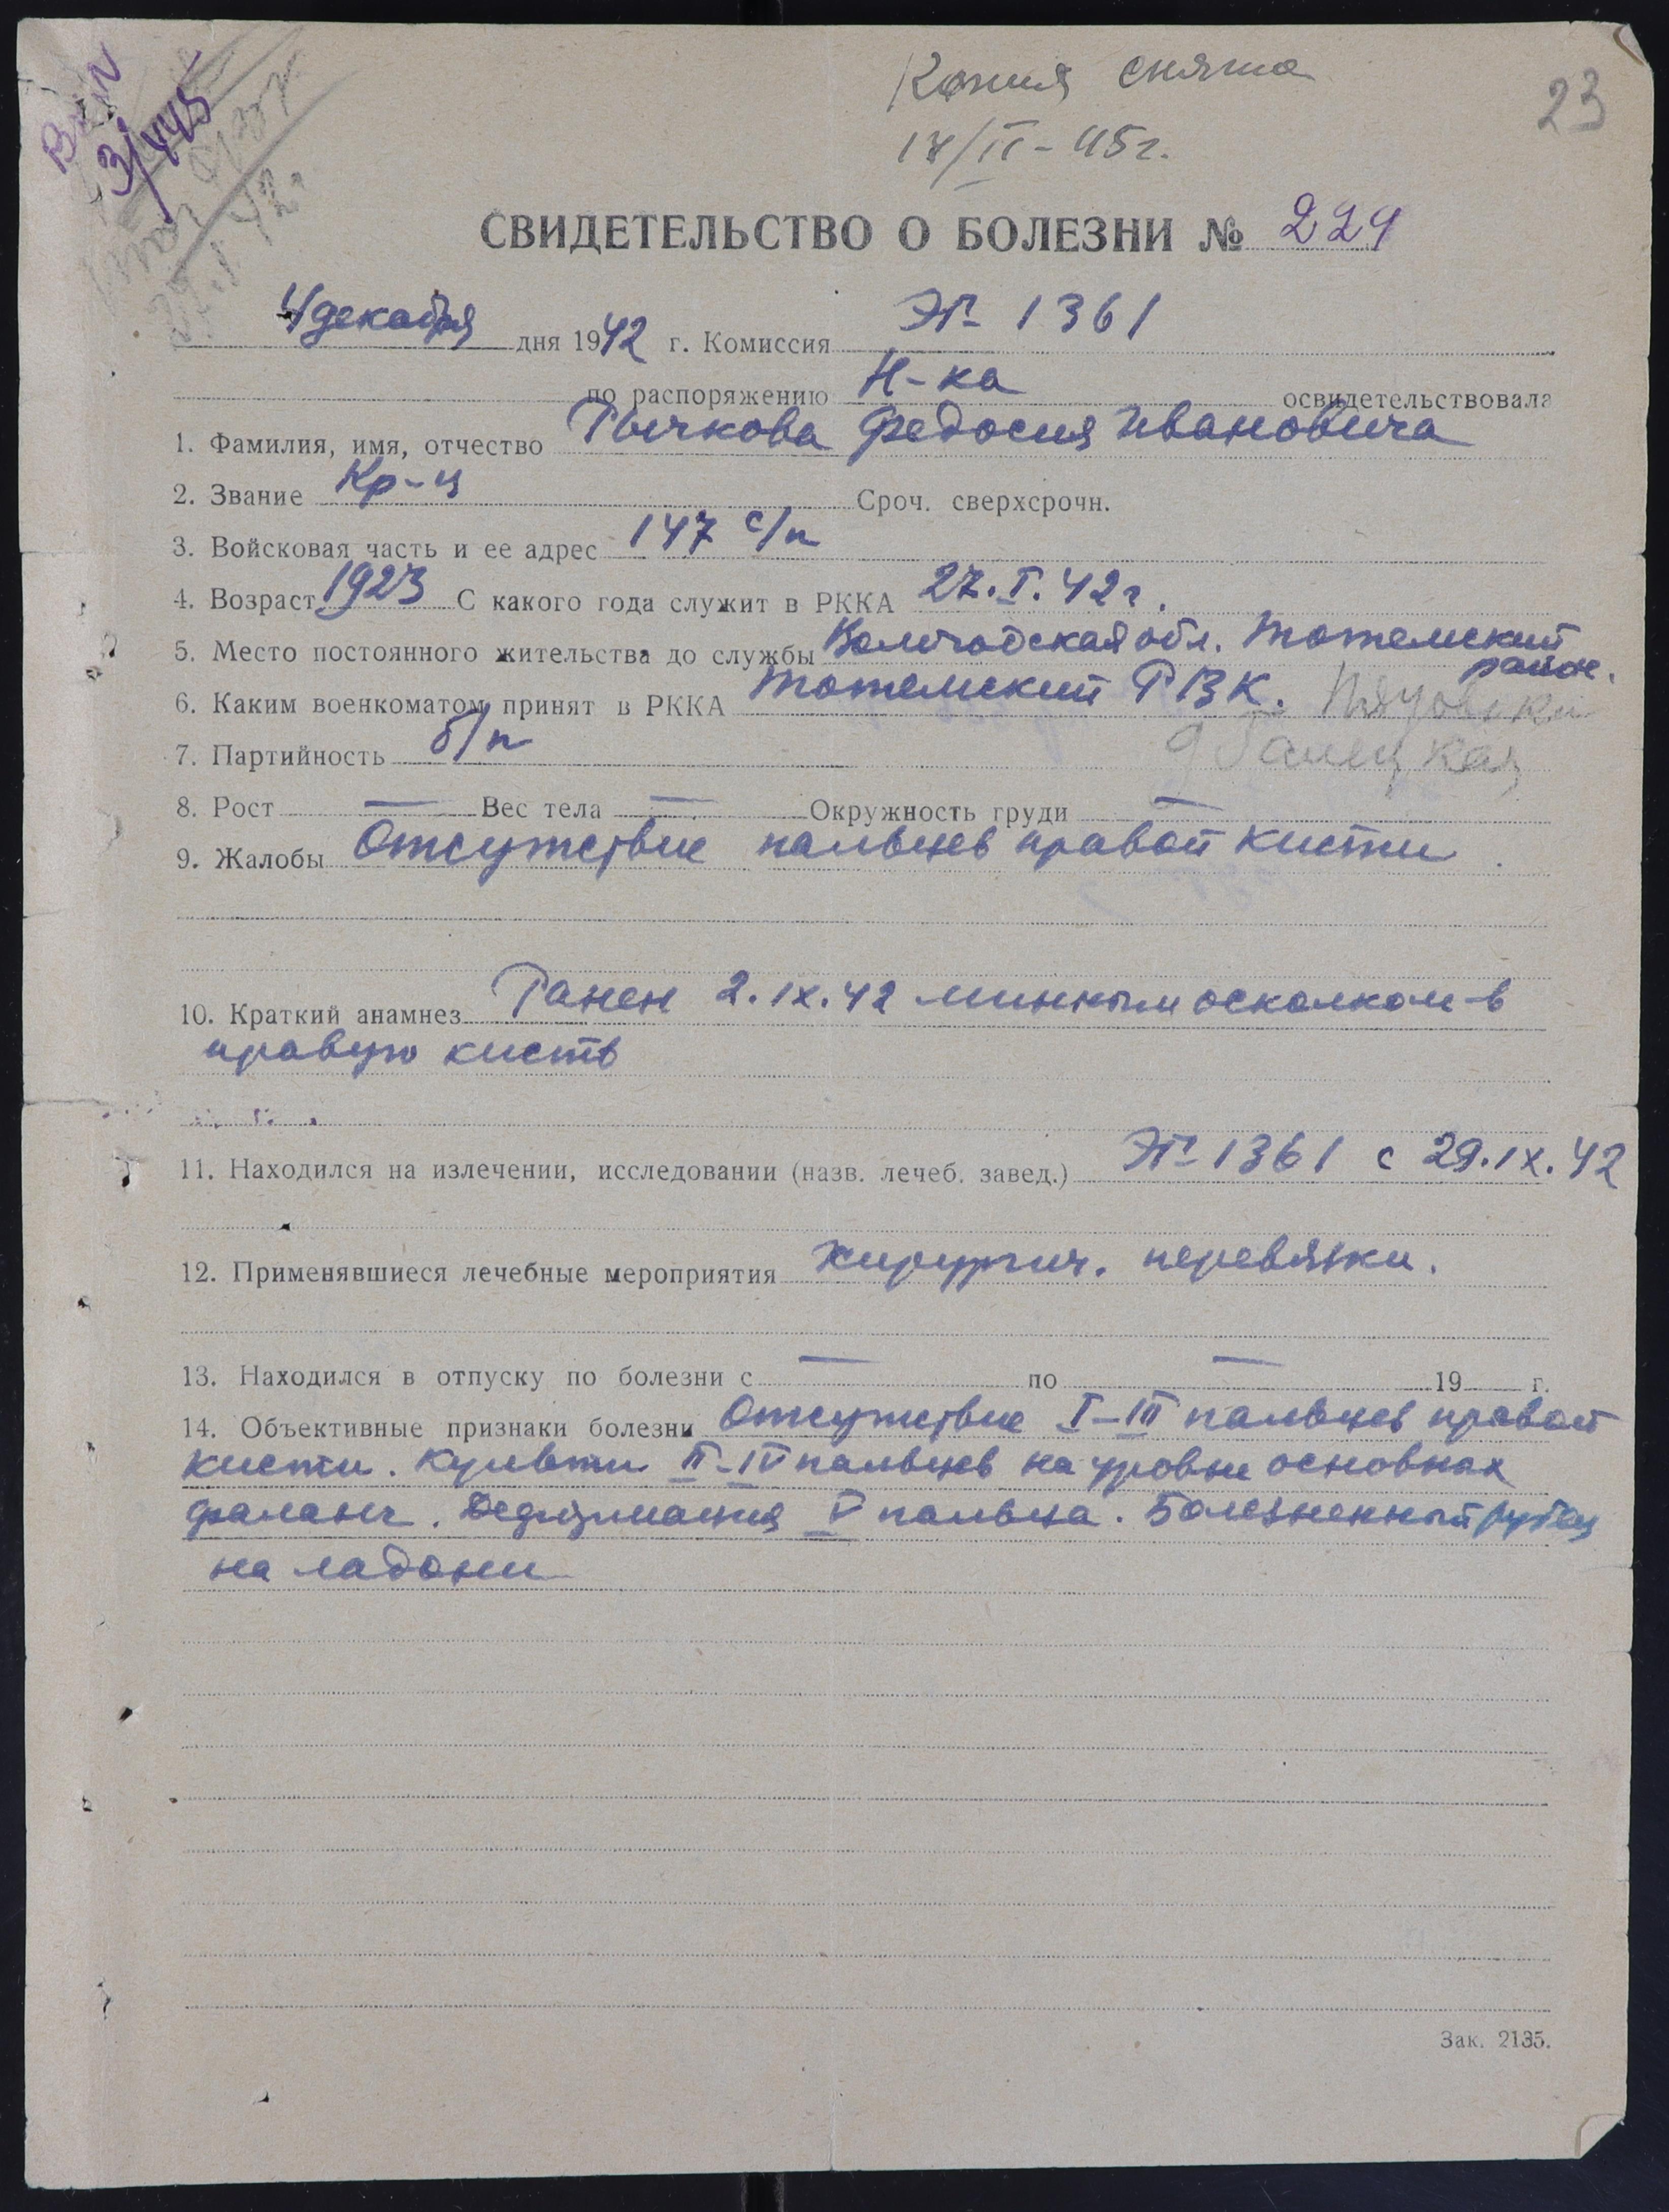 Копия снята
23
17/II-45г.
3/445
СВИДЕТЕЛЬСТВО О БОЛЕЗНИ № 224
4 декабря дня 1942 г. Комиссия ЭГ-1361
по распоряжению Н-ка освидетельствовала
1. Фамилия, имя, отчество Рычкова Федосия Ивановича
2. Звание Кр-ц Сроч. сверхсрочн.
3. Войсковая часть и ее адрес 147 с/п
4. Возраст 1923 С какого года служит в РККА 27.I.42г.
5. Место постоянного жительства до службы Вологодская обл. Тотемский
район.
6. Каким военкоматом принят в РККА Тотемский РВК.
7. Партийность б/п
8. Рост — Вес тела — Окружность груди —
9. Жалобы Отсутствие пальцев правой кисти.
10. Краткий анамнез Ранен 2.IX.42 минным осколком в
правую кисть
11. Находился на излечении, исследовании (назв. лечеб. завед.) ЭГ-1361 с 29.IX.42
12. Применявшиеся лечебные мероприятия хирургич. перевязки.
13. Находился в отпуску по болезни с — по — 19 г.
14. Объективные признаки болезни Отсутствие I-III пальцев правой
кисти. Культи II-IV пальцев на уровне основных
фаланг. Деформация V пальца. Болезненный рубец
на ладони
Зак. 2135.